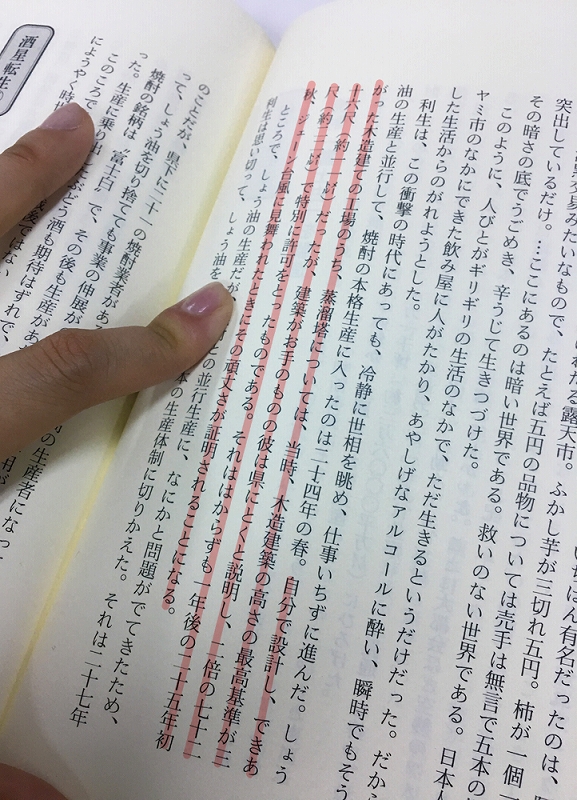 いちばん有名だったのは、
露天市。ふかし芋が三切れ五円。柿が一個
みたいなもので、たとえば五円の品物については売手は無言で五本の
突出しているだけ。…ここにあるのは暗い世界である。救いのない世界である。日本人
その暗さの底でうごめき、辛うじて生きつづけた。
このように、人びとがギリギリの生活のなかで、ただ生きるというだけだった。だから
ヤミ市のなかにできた飲み屋に人がたかり、あやしげなアルコールに酔い、瞬時でもそう
した生活からのがれようとした。
利生は、この衝撃の時代にあっても、冷静に世相を眺め、仕事いちずに進んだ。しょう
油の生産と並行して、焼酎の本格生産に入ったのは二十四年の春。自分で設計し、できあ
がった木造建ての工場のうち、蒸溜塔については、当時、木造建築の高さの最高基準が三
十六尺（約一一㍍）だったが、建築がお手のものの彼は県にとくと説明し、一倍の七十二
尺（約二二㍍）で特別に許可をとったものである。それははからずも一年後の二十五年初
秋、ジェーン台風に見舞われたときにその頑丈さが証明されることになる。
ところで、しょう油の生産だが、との並行生産に、なにかと問題がでてきたため、
利生は思い切って、しょう油を本の生産体制に切りかえた。それは二十七年
のことだが、県下に二十一の焼酎業者があ
って、しょう油を切り捨てても事業の伸展が
った。
焼酎の銘柄は〝富士白〟で、その後も生産が
った。生産に乗りぶどう酒も期待はずれで、
このころで戦後ではない
にようやく時
の生産者になって
酒星転生